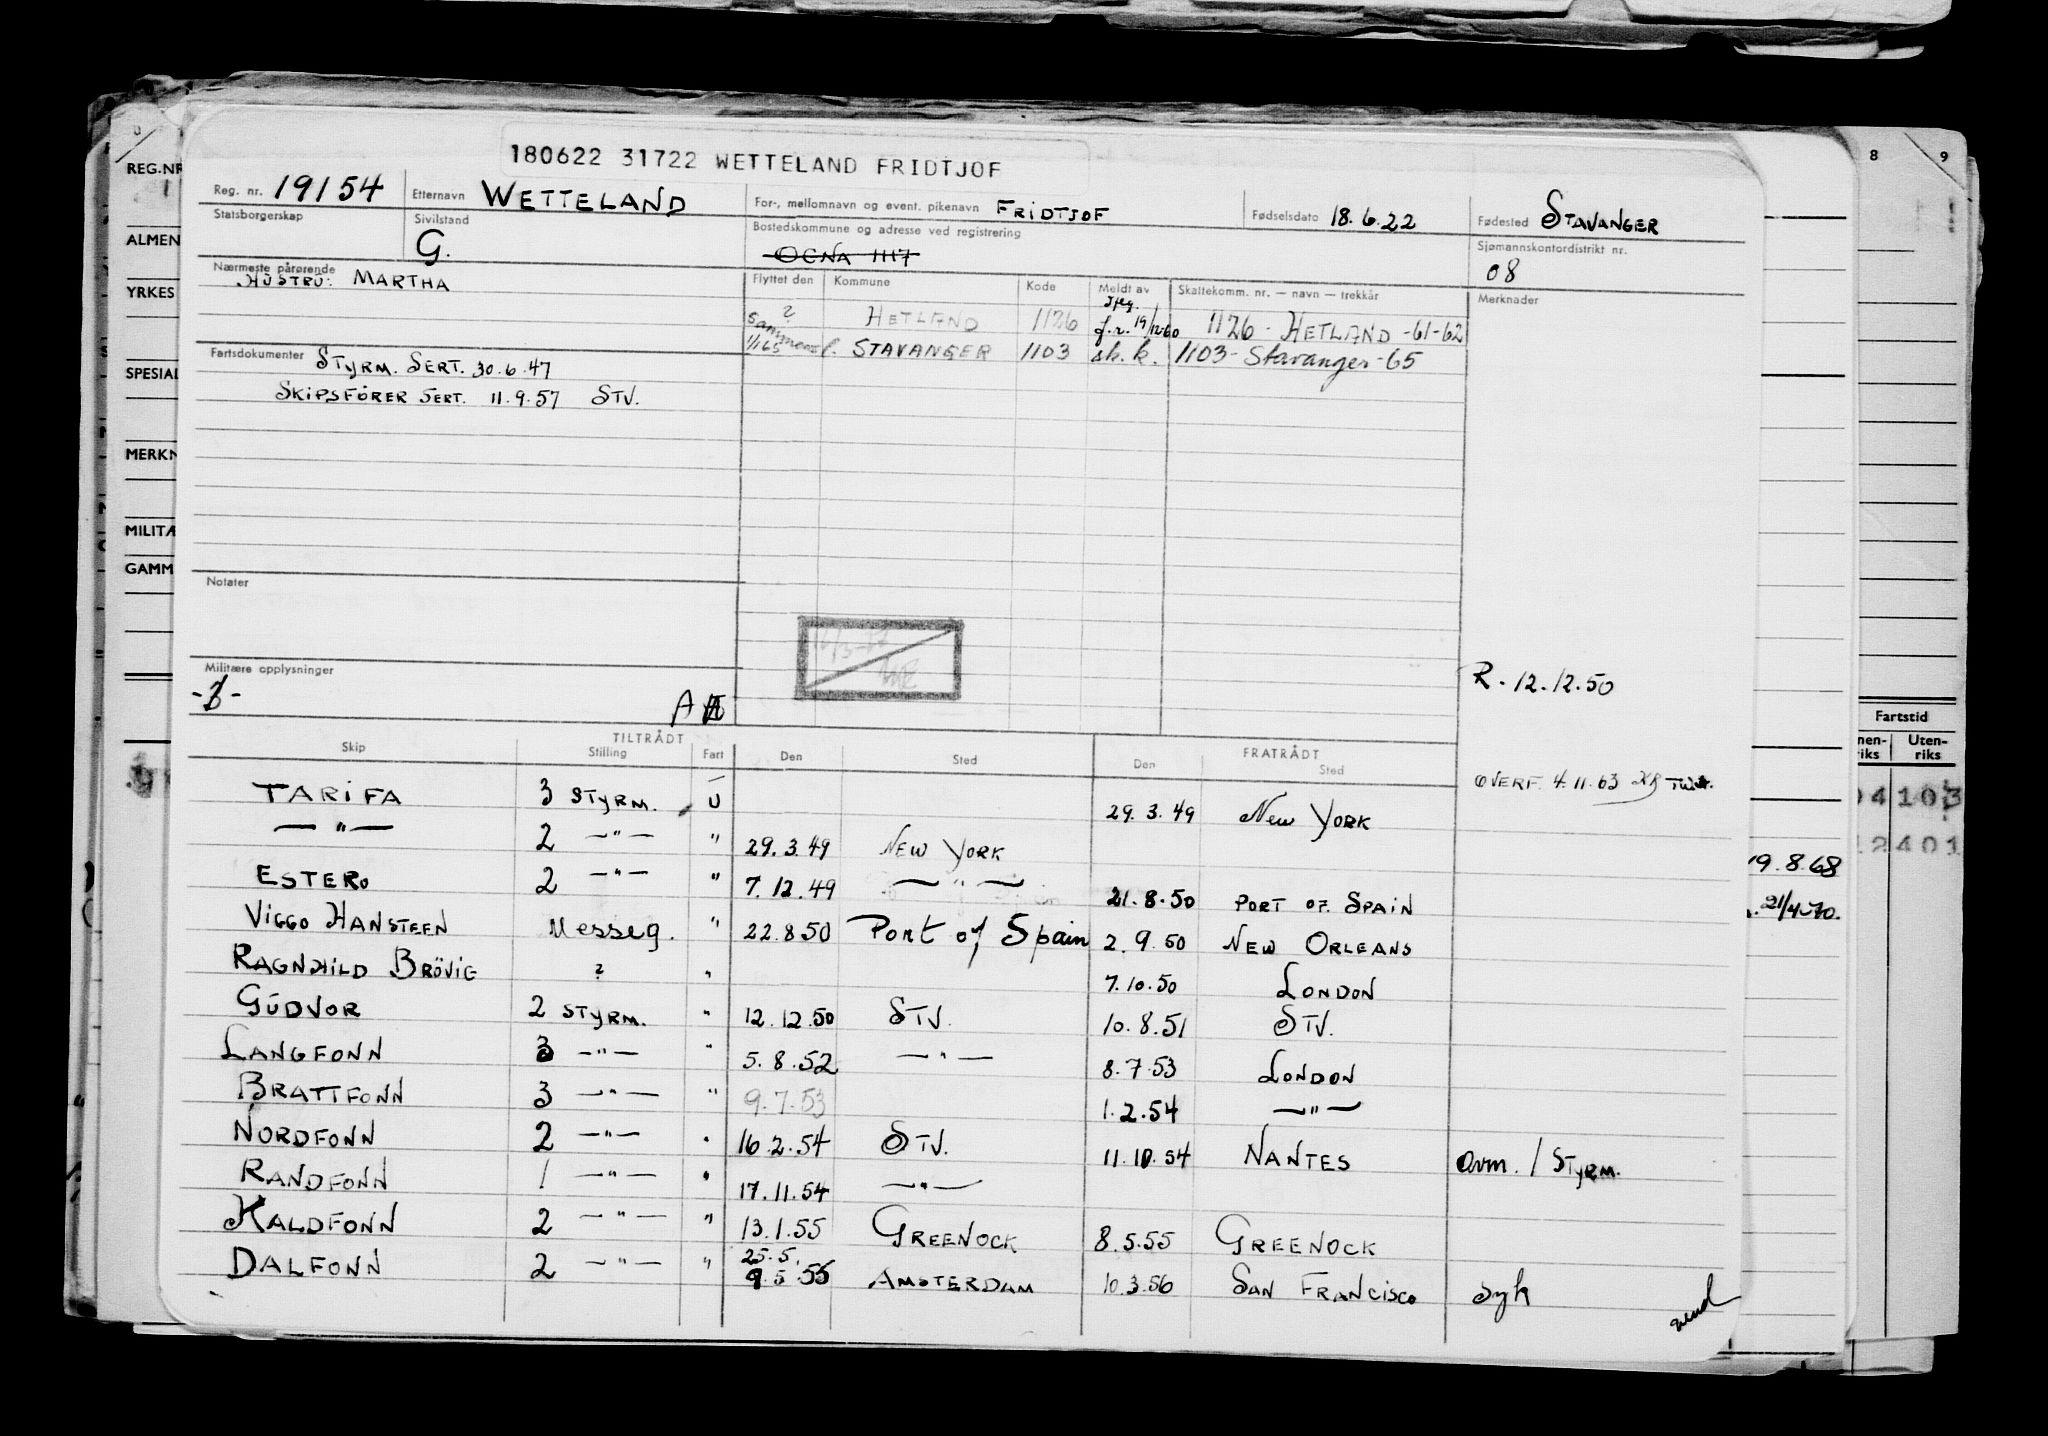 180622 31722 WETTELAND FRIDTJOF
Reg. nr. 19154 Etternavn WETTELAND For-, mellomnavn og event. pikenavn FRIDTJOF Fødselsdato 18.6.22 Fødested STAVANGER
Statsborgerskap Sivilstand G. Bostedskommune og adresse ved registrering OGNA 1117 Sjømannskontordistrikt nr. 08
Nærmeste pårørende HUSTRU: MARTHA Flyttet den Kommune Kode Meldt av Skattekomm. nr. — navn — trekkår Merknader
? HETLAND 1126 f.r. 19/12-60 1126 - HETLAND -61-62
1/1 65 STAVANGER 1103 sk. k. 1103 - Stavanger - 65
Fartsdokumenter STYRM. SERT. 30.6.47
SKIPSFÖRER SERT. 11.9.57 STV.
Notater
Militære opplysninger
R. 12.12.50
A
TILTRÅDT FRATRÅDT
Skip Stilling Fart Den Sted Den Sted
OVERF. 4.11.63
TARIFA 3 STYRM. U 29.3.49 NEW YORK
—"— 2 —"— " 29.3.49 NEW YORK
ESTERO 2 —"— " 7.12.49 —"— 21.8.50 PORT OF SPAIN
VIGGO HANSTEEN Messeg. " 22.8.50 Port of Spain 2.9.50 NEW ORLEANS
RAGNHILD BRÖVIG ? " 7.10.50 LONDON
GUDVOR 2 STYRM. " 12.12.50 STV. 10.8.51 STV.
LANGFONN 3 —"— " 5.8.52 —"— 8.7.53 LONDON
BRATTFONN 3 —"— " 9.7.53 1.2.54 —"—
NORDFONN 2 —"— " 16.2.54 STV. 11.10.54 NANTES avm. / STYRM.
RANDFONN 1 —"— " 17.11.54 —"—
KALDFONN 2 —"— " 13.1.55 GREENOCK 8.5.55 GREENOCK
25.5.
DALFONN 2 —"— " 9.5.55 AMSTERDAM 10.3.56 SAN FRANCISCO syk
vend
REG.NR
ALMEN
YRKES
SPESIAL
MERKN
MILITÆ
GAMM
8 9
Fartstid
Uten-
riks riks
04 103
2401
19.8.68
21/4-70.